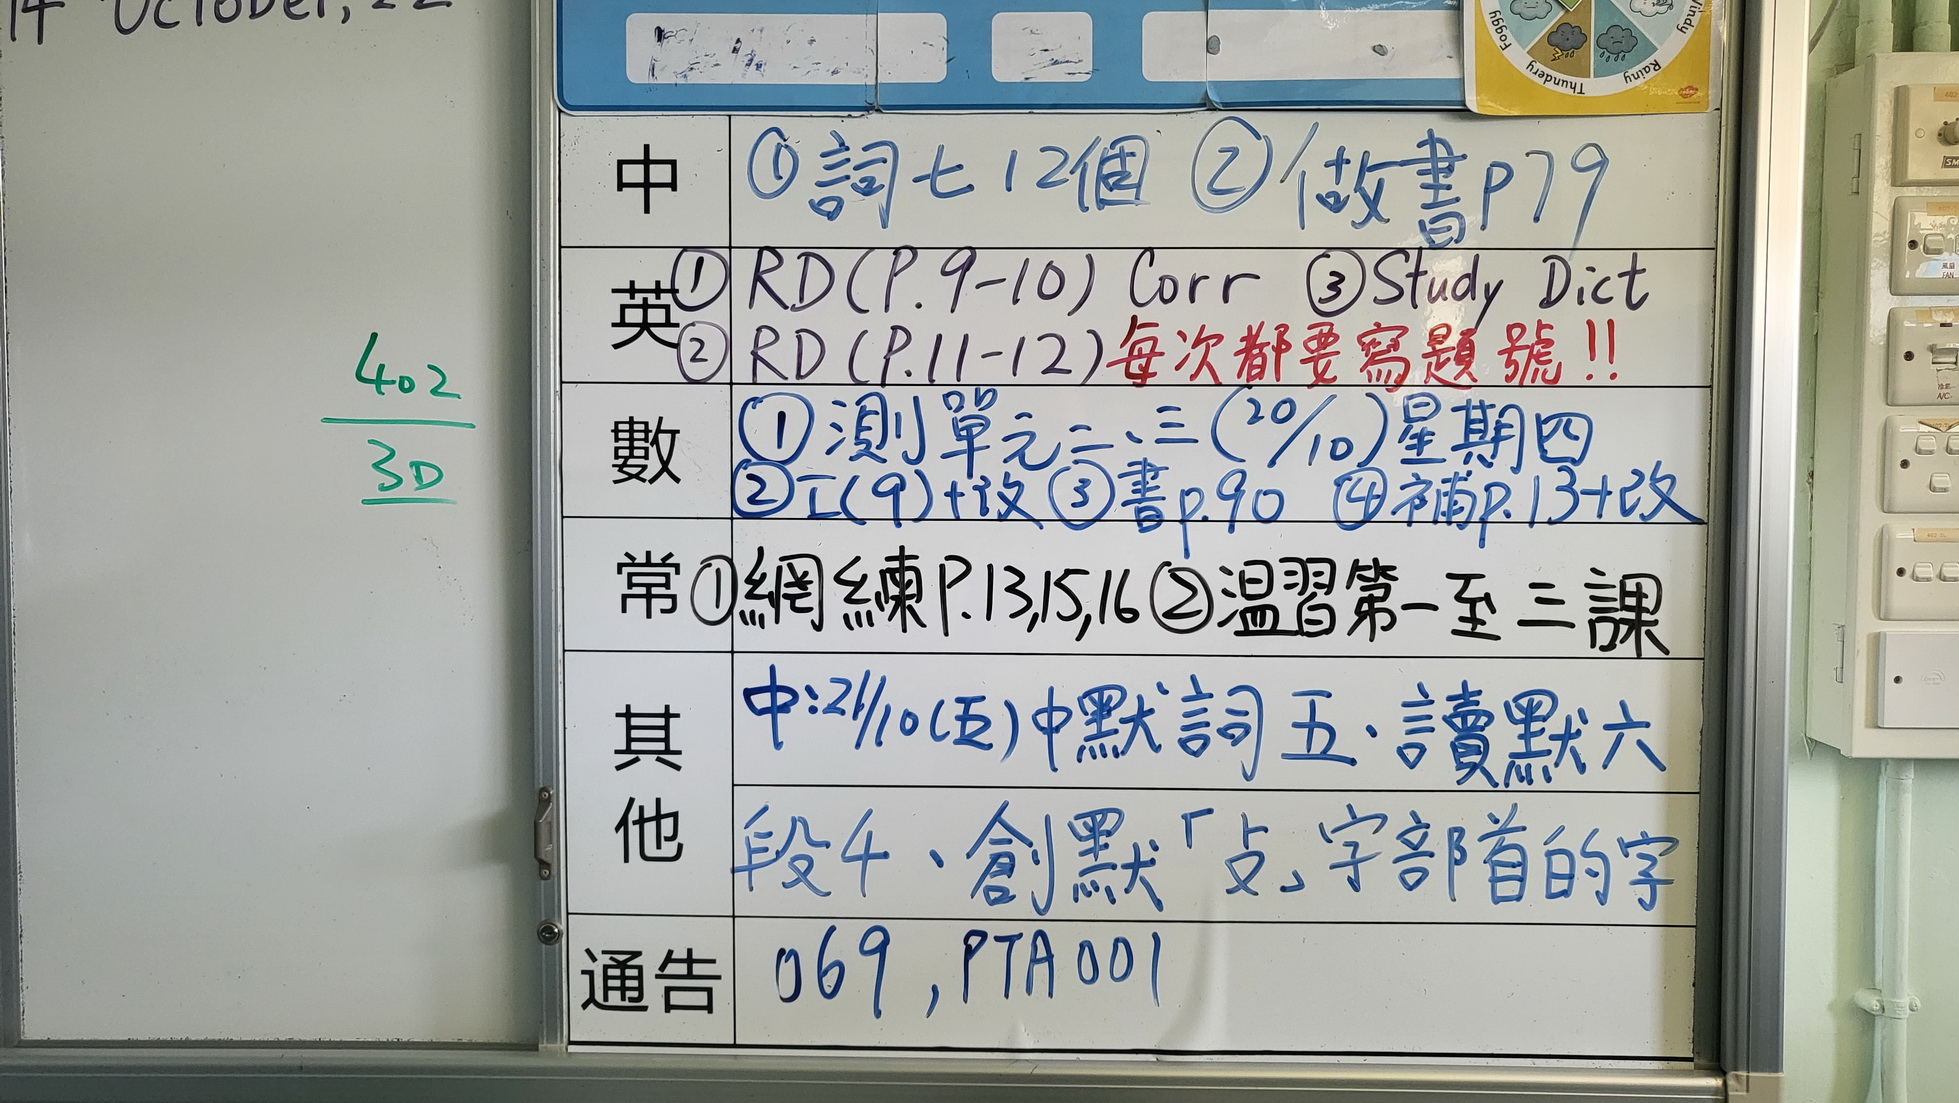 14 October, 22
Foggy
Thundery
Rainy
Windy
402
3D
中
①詞七12個 ②做書p79
英
①RD(P.9-10) Corr ③Study Dict
②RD(P.11-12)每次都要寫題號!!
數
①測單元二、三(20/10)星期四
②工(9)+改 ③書p.90 ④補p.13+改
常
①網練P.13,15,16②温習第一至三課
其他
中:21/10(五)中默詞五、讀默六
段4、創默「攴」字部首的字
通告
069,PTA001
風扇
FAN
A/C